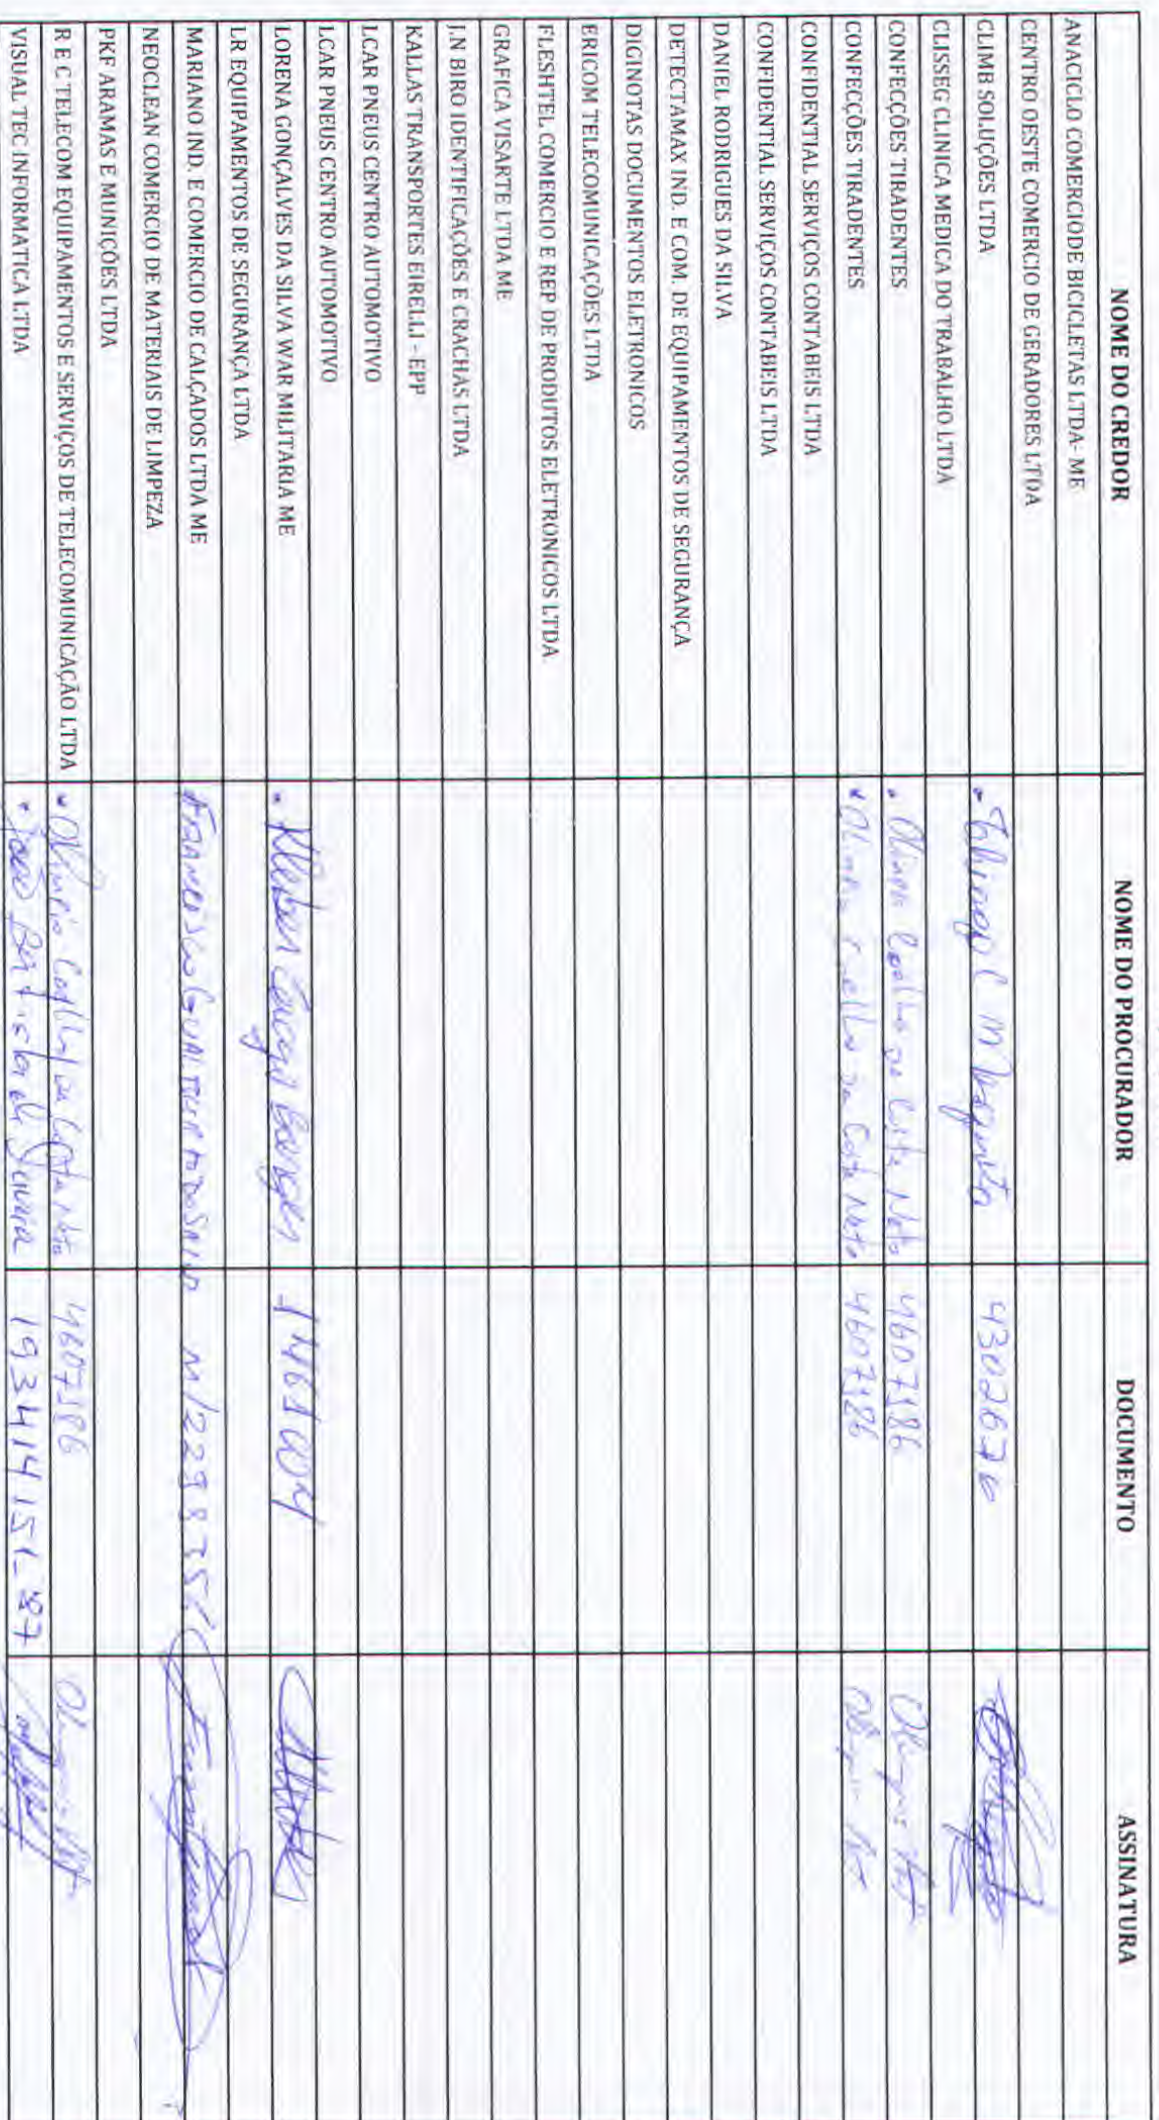 NOME DO CREDOR NOME DO PROCURADOR DOCUMENTO ASSINATURA
ANACICLO COMERCIODE BICICLETAS LTDA- ME
CENTRO OESTE COMERCIO DE GERADORES LTDA
CLIMB SOLUÇÕES LTDA 4302676
CLISSEG CLINICA MEDICA DO TRABALHO LTDA
CONFECÇÕES TIRADENTES Coelho da Costa Neto 4607186
CONFECÇÕES TIRADENTES Coelho da Costa Neto 4607186
CONFIDENTIAL SERVIÇOS CONTABEIS LTDA
CONFIDENTIAL SERVIÇOS CONTABEIS LTDA
DANIEL RODRIGUES DA SILVA
DETECTAMAX IND. E COM. DE EQUIPAMENTOS DE SEGURANÇA
DIGINOTAS DOCUMENTOS ELETRONICOS
ERICOM TELECOMUNICAÇÕES LTDA
FLESHTEL COMERCIO E REP DE PRODUTOS ELETRONICOS LTDA
GRAFICA VISARTE LTDA ME
J.N BIRO IDENTIFICAÇÕES E CRACHÁS LTDA
KALLAS TRANSPORTES EIRELLI - EPP
LCAR PNEUS CENTRO AUTOMOTIVO
LCAR PNEUS CENTRO AUTOMOTIVO
LORENA GONÇALVES DA SILVA WAR MILITARIA ME
LR EQUIPAMENTOS DE SEGURANÇA LTDA
MARIANO IND. E COMERCIO DE CALÇADOS LTDA ME FRANCISCO
NEOCLEAN COMERCIO DE MATERIAIS DE LIMPEZA
PKF ARAMAS E MUNIÇÕES LTDA
R E C TELECOM EQUIPAMENTOS E SERVIÇOS DE TELECOMUNICAÇÃO LTDA Coelho da Costa Neto 4607186
VISUAL TEC INFORMATICA LTDA João Batista de 193414151-87